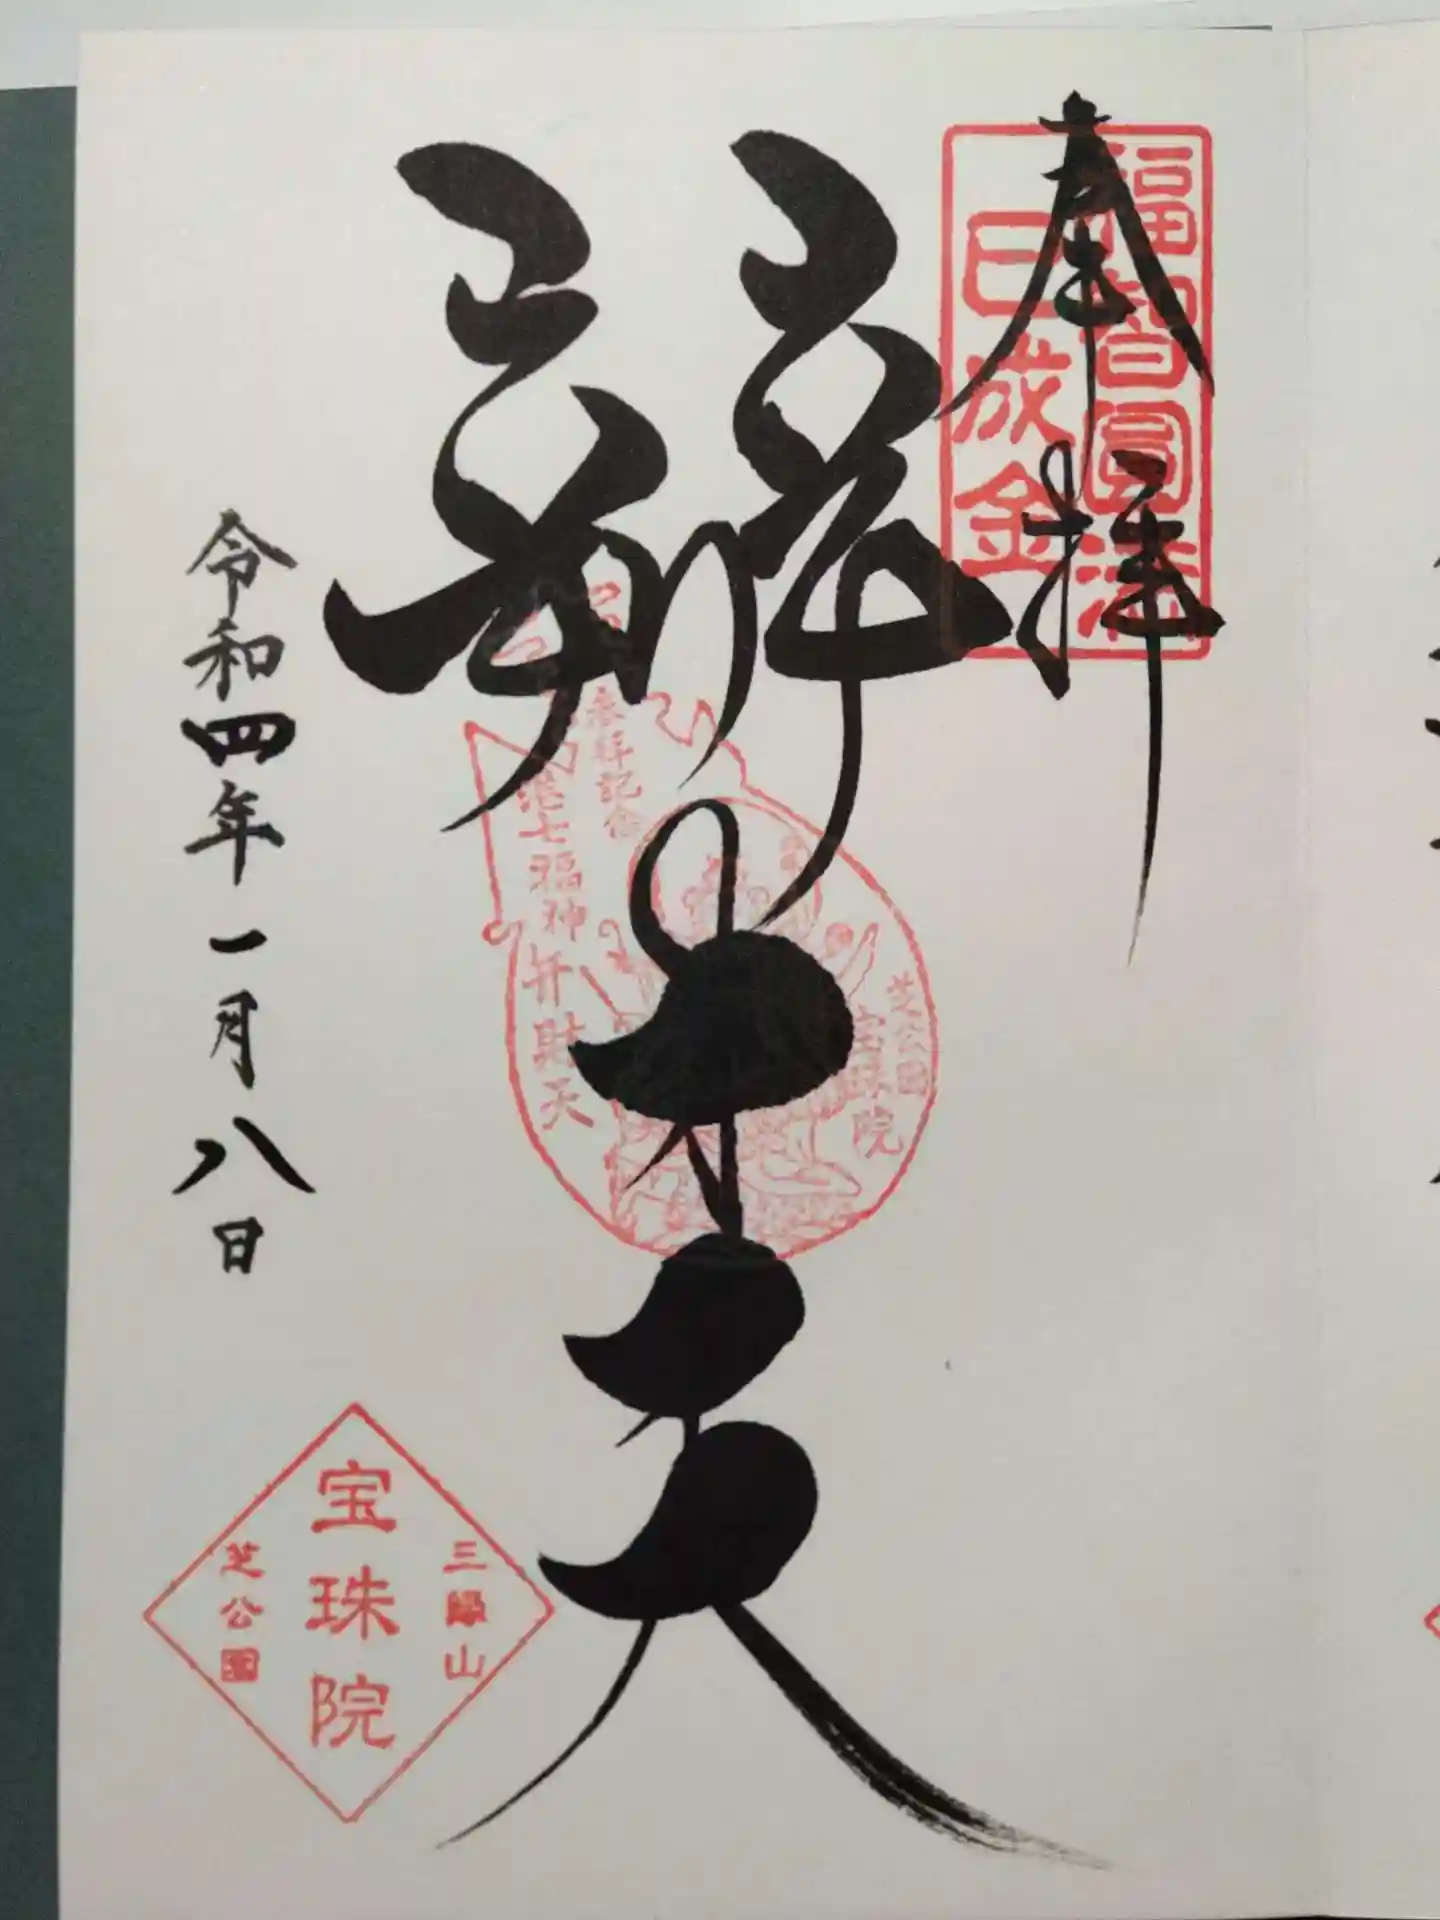 奉拝
福智圓満
巳成金
辨才天
参拝記念
港七福神弁財天
芝公園
宝珠院
令和四年一月八日
三縁山
宝珠院
芝公園